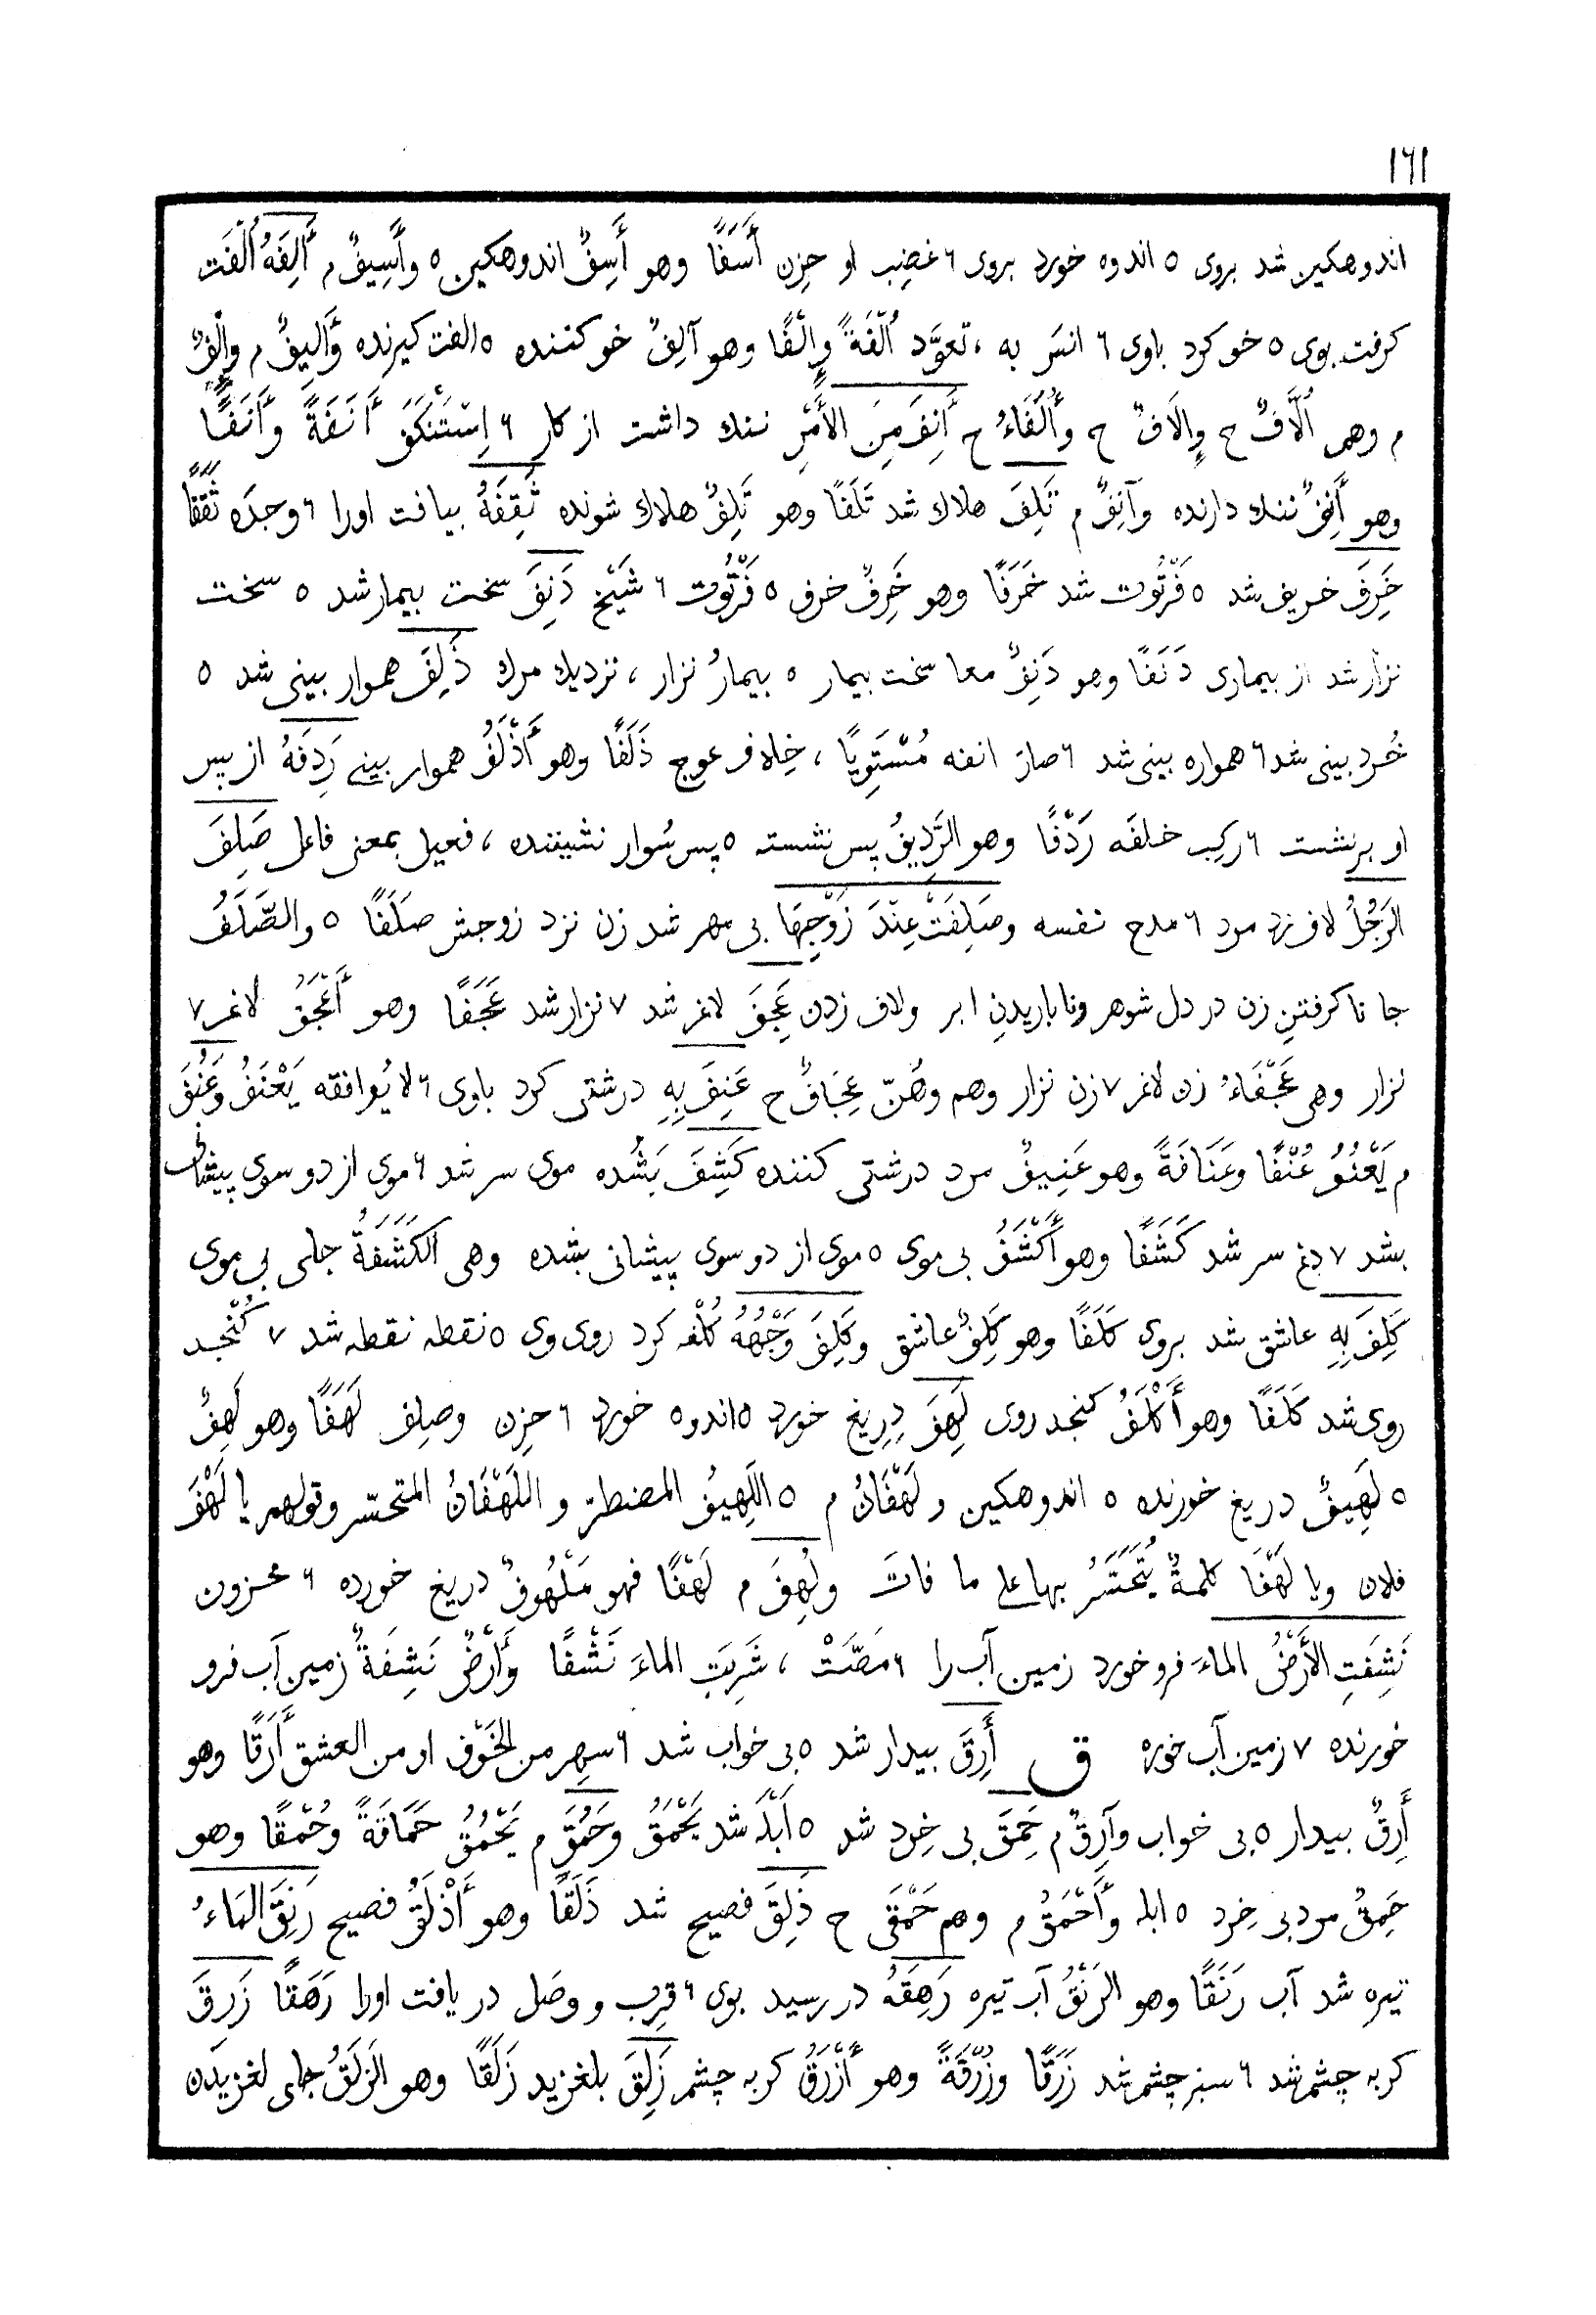 ١٦١
اندوهکین شد بروی ٥ اندوه خورد بروی ٦ غضِب او حزِن أَسَفًا وهو أَسِفٌ اندوهکین ٥ وأَسِيفٌ م أَلِفَهُ اُلْفَت
کرفت بوی ٥ خو کرد باوی ٦ انسَ به ، تعوَّد اُلْفَةً وإِلْفًا وهو آلِفٌ خو کننده ٥ الفت کیرنده وَأَلِيفٌ م وإِلْفٌ
م وهم اُلَّافٌ ح وإِلَافٌ ح وأُلَفَاءُ ح أَنِفَ مِنَ الأَمْرِ ننك داشت از کار ٦ اِسْتَنْكَفَ أَنَفَةً وأَنَفًا
وهو أَنِفٌ ننك دارنده وآنِفٌ م تَلِفَ هلاك شد تَلَفًا وهو تَلِفٌ هلاك شونده ثَقِفَهُ بیافت اورا ٦ وجدَه ثَقَفًا
خَرِفَ خریف شد ٥ فَرْتُوت شد خَرَفًا وهو خَرِفٌ خرف ٥ فَرْتُوت ٦ شَيْخ دَنِفَ سخت بیمار شد ٥ سخت
نزار شد از بیماری دَنَفًا وهو دَنِفٌ معا سخت بیمار ٥ بیمارُ نزار ، نزدیك مرك ذَلِفَ هموار بینی شد ٥
خُرد بینی شد ٦ همواره بینی شد ٦ صارَ انفه مُسْتَوِيًا ، خِلاف عوج ذَلَفًا وهو أَذْلَفُ هموار بینے رَدِفَهُ از پس
او برنشست ٦ رکِب خلفَه رَدْفًا وهو الرَّدِيفُ پس نشسته ٥ پس سُوار نشیننده ، فعیل بمعنی فاعل صَلِفَ
الرَجُلُ لاف زد مرد ٦ مدح نفسه وصَلِفَتْ عِنْدَ زَوْجِهَا بی مهر شد زن نزد زوجش صلَفًا ٥ والصَّلَفُ
جا ناکرفتنِ زن در دل شوهر ونا باریدنِ ابر ولاف زدن عَجِفَ لاغر شد ٧ نزار شد عَجَفًا وهو أَعْجَفُ لاغر ٧
نزار وهی عَجْفَاءُ زن لاغر ٧ زن نزار وهم وهُنّ عِجَافٌ ح عَنِفَ بِهِ درشتی کرد باوی ٦ لا يُوافقه يَعْنَفُ وَعَنُفَ
م يَعْنُفُ عُنْفًا وعَنَافَةً وهو عَنِيفٌ مرد درشتی کننده كَشِفَ بَشُده موی سر شد ٦ موی از دو سوی پیشانی
بشد ٧ دغ سر شد كَشَفًا وهو أَكْشَفُ بی موی ٥ موی از دو سوی پیشانی بشده وهی الكَشَفَةُ جای بی موی
كَلِفَ بِهِ عاشق شد بروی كَلَفًا وهو كَلِفٌ عاشق وكَلِفَ وَجْهُهُ كُلْفه کرد روی وی ٥ نقطه نقطه شد ٧ كُنْجد
روی شد كَلَفًا وهو أَكْلَفُ کنجد روی لَهِفَ دِرِیغ خورد ٥ اندوه خورد ٦ حزِن وصلِف لَهَفًا وهو لَهِفٌ
٥ لَهِيفٌ دریغ خورنده ٥ اندوهکین و لَهْفَانُ م ٥ اللَهِيفُ المضطرّ و اللَهْفَانُ المتحسّر وقولهم يا لَهْفَ
فلان ويا لَهْفَا كلمةٌ يُتَحَسَّرُ بها على ما فاتَ ولُهِفَ م لَهْفًا فهو مَلْهُوفٌ دریغ خورده ٦ محزون
نَشِفَتِ الأَرْضُ الماءَ فرو خورد زمین آب را ٦ مَصَّتْ ، شَرِبَتِ الماءَ نَشْفًا وَأَرْضٌ نَشِفَةٌ زمین آب فرو
خورنده ٧ زمین آب خوره ق أَرِقَ بیدار شد ٥ بی خواب شد ٦ سهِر من الخَوْف او من العشق أَرَقًا وهو
أَرِقٌ بیدار ٥ بی خواب وآرِقٌ م حَمِقَ بی خِرد شد ٥ اَبْلَه شد يَحْمَقُ وحَمُقَ م يَحْمُقُ حَمَاقَةً وحُمْقًا وهو
حَمِقٌ مرد بی خِرد ٥ ابله وأَحْمَقُ م وهم حَمْقَى ح ذَلِقَ فصیح شد ذَلَقًا وهو أَذْلَقُ فصیح رَنِقَ المَاءُ
تیره شد آب رَنَقًا وهو الرَنْقُ آب تیره رَهِقَهُ در رسید بوی ٦ قرِب و وصَل در یافت اورا رَهَقًا زَرِقَ
کربه چشم شد ٦ سبز چشم شد زَرَقًا وزُرْقَةً وهو أَزْرَقُ کربه چشم زَلِقَ بلغزید زَلَقًا وهو الزَلَقُ جای لغزیدن